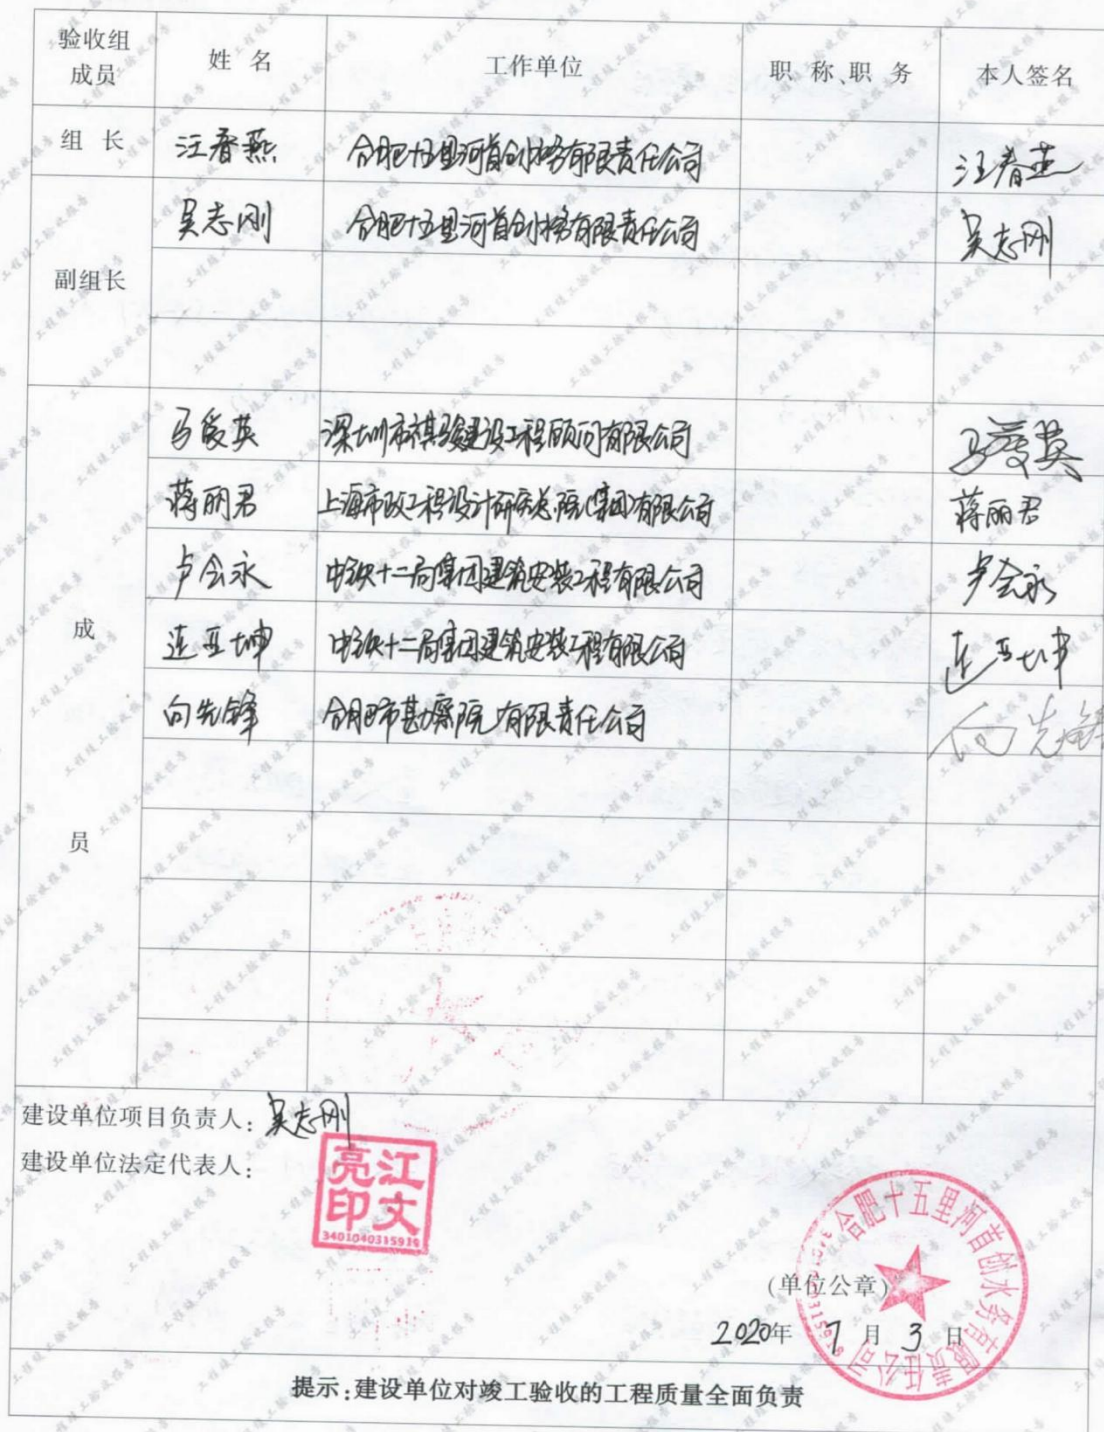 验收组成员 姓 名 工作单位 职 称、职 务 本人签名
组 长 汪春燕 合肥十五里河首创水务有限责任公司 汪春燕
副组长 吴志刚 合肥十五里河首创水务有限责任公司 吴志刚
成员
马爱英 深圳市祺骏建设工程顾问有限公司 马爱英
蒋丽君 上海市政工程设计研究总院(集团)有限公司 蒋丽君
卢会永 中铁十二局集团建筑安装工程有限公司 卢会永
连亚坤 中铁十二局集团建筑安装工程有限公司 连亚坤
向先锋 合肥市勘察院有限责任公司 向先锋
建设单位项目负责人: 吴志刚
建设单位法定代表人:
江文亮印
3401040315919
合肥十五里河首创水务有限责任公司
(单位公章)
2020年 7 月 3 日
提示:建设单位对竣工验收的工程质量全面负责
工程竣工验收报告